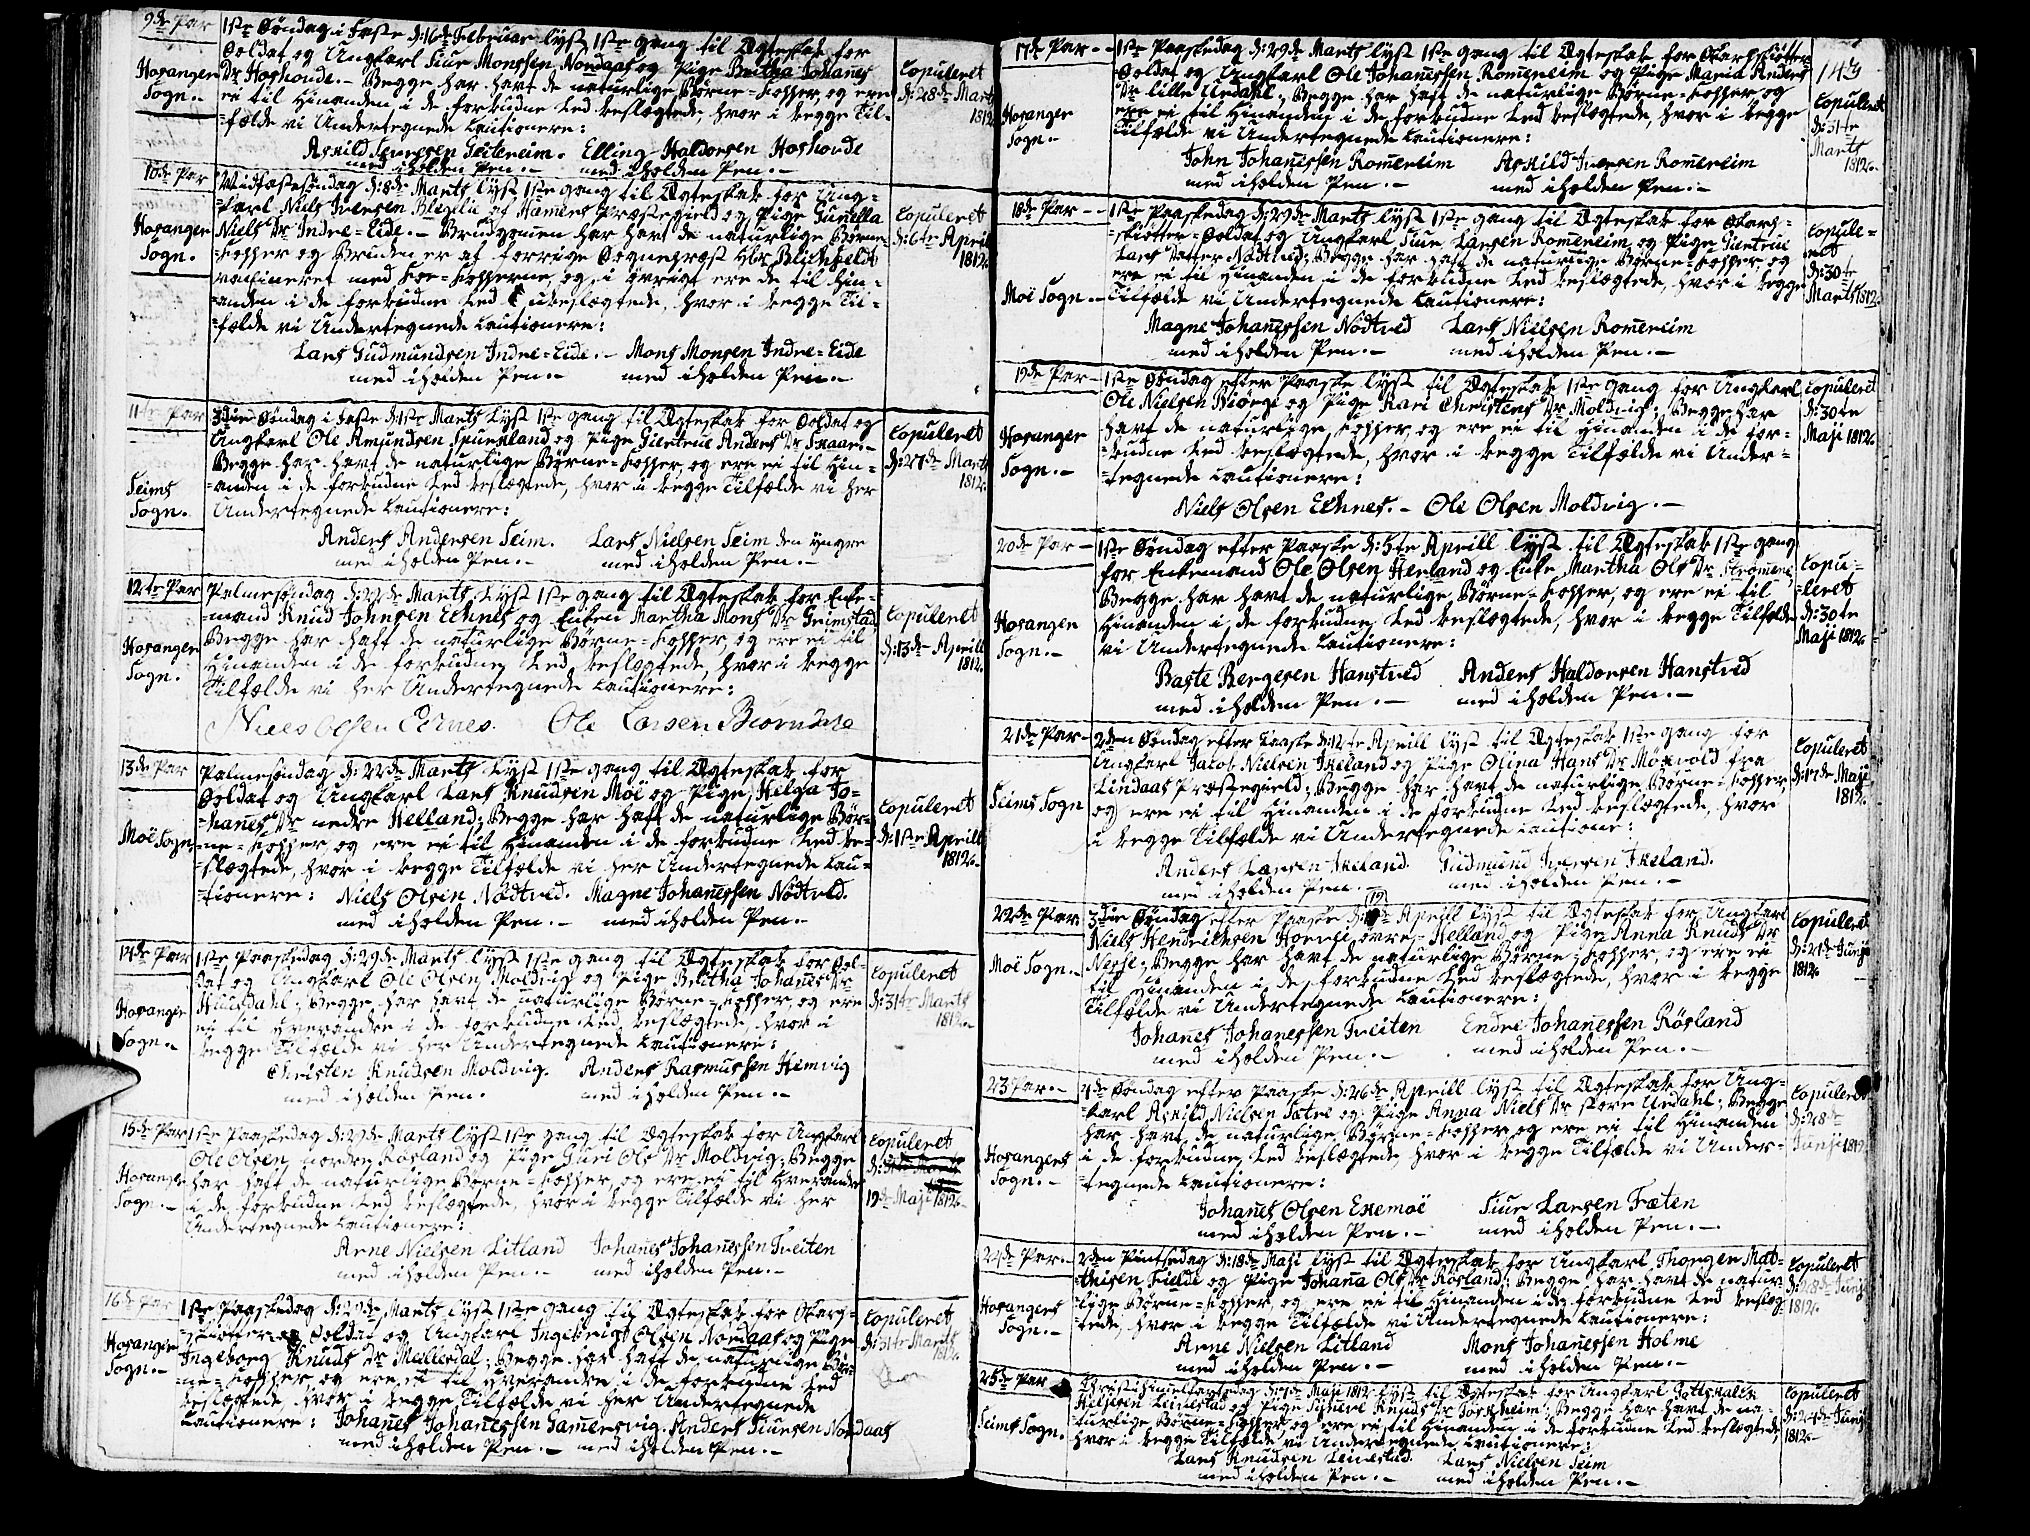 9de Par
Hosanger
Sogn.-
1ste Søndag i Faste d: 16de Februar lyst 1ste gang til Ægteskab for
Soldat og Ungkarl Siur Monssen Nordaas og Pige Britha Johanes
Dr Hoshovde.- Begge har havt de naturlige Børne=Kopper, og ere
ei til Hinanden i de forbudne Led beslægtede, hvor i begge Til-
=fælde vi Undertegnede Cautionere:
Askild Iversen Seitereim. Elling Haldorsen Hoshovde
med iholden Pen.- med iholden Pen.-
Copuleret
d: 28de Marti
1812
10de Par
Hosanger
Sogn.
Midfastesøndag d: 8de Marts lyst 1ste gang til Ægteskab for Ung-
=karl Niels Iversen af Hamers Præstegield og Pige Gunilla
Niels Dr Indre=Eide.- Brudgomen har havt de naturlige Børne=
=Kopper og Bruden er af forrige Sognepræst Hbr Blichfeldt
vaccineret med Koe=Kopperne, og i øvrigt ere de til Hin-
=anden i de forbudne Led ubeslægtede, hvor i begge Til-
=fælde vi Undertegnede Cautionere:
Lars Gudmundsen Indre=Eide.- Mons Monsen Indre=Eide
med iholden Pen.- med iholden Pen.-
Copuleret
d: 6te Aprill
1812.
11te Par
Seims
Sogn.
3die Søndag i Faste d: 1ste Marts lyst 1ste gang til Ægteskab for Soldat og
Ungkarl Ole Amundsen Spurkland og Pige Giertrue Anders Dr Skaar.-
Begge har havt de naturlige Børne=Kopper, og ere ei til Hin-
=anden i de forbudne Led beslægtede, hvor i begge Tilfælde vi her
Undertegnede Cautionere:
Anders Andersen Seim. Lars Nielsen Seim den yngre
med iholden Pen.- med iholden Pen.-
Copuleret
d: 27de Marti
1812.
12te Par
Hosanger
Sogn.
Palmesøndag d: 22de Marts lyst 1ste gang til Ægteskab for Enke-
=mand Knud Johnsen Echnes og Enken Martha Mons Dr Grimstad
Begge har haft de naturlige Børne=Kopper, og ere ei til
Hinanden i de forbudne Led beslægtede, hvor i begge
Tilfælde vi her Undertegnede Cautionere:
Niels Olsen Ecnes. Ole Larsen Biørndale
Copuleret
d: 13de Aprill
1812.
13de Par
Moë Sogn
Palmesøndag d: 22de Marts lyst 1ste gang til Ægteskab for
Soldat og Ungkarl Lars Knudsen Moë og Pige Helga Jo-
=hanes Dr nedre Helland; Begge har haft de naturlige Bør-
=ne=Kopper, og ere ei til Hinanden i de forbudne Led be-
=slægtede, hvor i begge Tilfælde vi her Undertegnede Cau-
=tionere: Niels Olsen Nødtved. Magne Johanessen Nødtved.
med iholden Pen.- med iholden Pen.-
Copuleret
d: 1ste Aprill
1812.
14de Par
Hosanger
Sogn.-
1ste Paaskedag d: 29de Marts lyst 1ste gang til Ægteskab for Sol-
dat og Ungkarl Ole Olsen Moldvig og Pige Britha Johanes Dr
Begge har havt de naturlige Børne=Kopper, og ere
ei til Hverandre i de forbudne Led beslægtede, hvor i
begge Tilfælde vi her Undertegnede Cautionere:
Christen Knudsen Moldvig. Anders Rasmussen Hemvig
med iholden Pen. med iholden Pen.-
Copuleret
d: 31te Marts
1812.
15de Par
Hosanger
Sogn.-
1ste Paaskedag d: 29de Marts lyst 1ste gang til Ægteskab for Ungkarl
Ole Olsen nordre Røsland og Pige Guri Ols Dr Moldvig; Begge
har haft de naturlige Børne=Kopper, og ere ei til Hverandre
i de forbudne Led beslægtede, hvor i begge Tilfælde vi her
Undertegnede Cautionere:
Arne Nielsen Litland Johanes Johanessen Tveiten
med iholden Pen.- med iholden Pen.-
Copuleret
19de Maji 1812.
16de Par
Hosanger
Sogn.-
1ste Paaskedag d: 29de Marts lyst 1ste gang til Ægteskab for Skarp-
=skiøtter og Soldat og Ungkarl Ingebrigt Olsen Nordaas og Pige
Ingeborg Knuds Dr Mellesdal; Begge har haft de naturlige Bør-
=ne=Kopper, og ere ei til Hverandre i de forbudne Led
beslægtede, hvor i begge Tilfælde vi her Undertegnede
Cautionere: Johanes Johanessen Samersvig. Anders Siursen Nordaas
med iholden Pen.- med iholden Pen.-
Copuleret
d: 31te Marts
1812.
143
17de Par -
Hosanger
Sogn.-
1ste Paaskedag d: 29de Marts lyst 1ste gang til Ægteskab for Skarpskiøtter
Soldat og Ungkarl Ole Johanessen Romereim og Pige Maria Anders
Dr lille Urdahl; Begge har haft de naturlige Børne=Kopper, og
ere ei til Hinanden i de forbudne Led beslægtede, hvor i begge
Tilfælde vi Undertegnede Cautionere:
John Johanessen Romereim Askild Iversen Romereim
med iholden Pen.- med iholden Pen.-
Copuleret
d: 31te
Marts
1812.
18de Par -
Moë Sogn.-
1ste Paaskedag d: 29de Marts lyst 1ste gang til Ægteskab for Skarp-
=skiøtter=Soldat og Ungkarl Siur Larsen Romereim og Pige Giertrue
Lars Datter Nødtved; Begge har haft de naturlige Børne=Kopper, og
ere ei til Hinanden i de forbudne Led beslægtede, hvor i begge
Tilfælde vi Undertegnede Cautionere:
Magne Johanessen Nødtved Lars Nielsen Romereim
med iholden Pen.- med iholden Pen.-
Copule=
ret
d: 30te
Marts 1812.
19de Par -
Hosanger
Sogn.-
1ste Søndag efter Paaske lyst til Ægteskab 1ste gang for Ungkarl
Ole Nielsen Biørge og Pige Kari Christens Dr Moldvig; Begge har
havt de naturlige Kopper, og ere ei til Hinanden i de for-
=budne Led beslægtede, hvor i begge Tilfælde vi Under-
=tegnede Cautionere:
Niels Olsen Echnes.- Ole Olsen Moldvig.-
Copuleret
d: 30te
Maji 1812.
20de Par -
Hosanger
Sogn.-
1ste Søndag efter Paaske d: 5te Aprill lyst til Ægteskab 1ste gang
for Enkemand Ole Olsen Herland og Enke Martha Ols Dr Strømene
Begge har havt de naturlige Børne=Kopper, og ere ei til
Hinanden i de forbudne Led beslægtede, hvor i begge Tilfælde
vi Undertegnede Cautionere:
Baste Bergesen Hanstved Anders Haldorsen Hanstved
med iholden Pen.- med iholden Pen.-
Copu-
=leret
d: 30te
Maji 1812.
21de Par -
Seims Sogn
2den Søndag efter Paaske d: 12te Aprill lyst til Ægteskab 1ste gang for
Ungkarl Jacob Nielsen Ikeland og Pige Olina Hans Dr Mørkvold fra
Lindaas Præstegield; Begge har havt de naturlige Børne=Kopper,
og ere ei til Hinanden i de forbudne Led beslægtede, hvor
i begge Tilfælde vi Undertegnede Cautione:
Anders Larsen Ikeland. Gudmund Iversen Ikeland.
med iholden Pen.- med iholden Pen.-
Copuleret
d: 17de Maji
1812.
22de Par
Moë Sogn.-
3die Søndag efter Paaske d: 19de Aprill lyst til Ægteskab for Ungkarl
Niels Hendrichsen øvre=Helland og Pige Anna Knuds Dr
Nesse; Begge har havt de naturlige Børne=Kopper, og ere ei
til Hinanden i de forbudne Led beslægtede, hvor i begge
Tilfælde vi Undertegnede Cautionere:
Johanes Johanessen Tveiten Endre Johanessen Røsland
med iholden Pen.- med iholden Pen.-
Copuleret
d: 21de Junji
1812.
23 Par.-
Hosangers
Sogn.-
4de Søndag efter Paaske d: 26de Aprill lyst til Ægteskab for Ung-
=karl Askild Nielsen Sætre og Pige Anna Niels Dr store Urdahl; Begge
har havt de naturlige Børne=Kopper, og ere ei til Hinanden
i de forbudne Led beslægtede, hvor i begge Tilfælde vi Under-
=tegnede Cautionere:
Johanes Olsen Exemoë Siur Larsen Fæten
med iholden Pen.- med iholden Pen.-
Copuleret
d: 28de
Junji 1812.
24de Par.-
Hosangers
Sogn.-
2den Pintsedag d: 18de Maji lyst til Ægteskab for Ungkarl Thorger Mat-
thisen Fielde og Pige Johana Ols Dr Røsland; Begge har havt de natur
lige Børne=Kopper, og ere ei til Hinanden i de forbudne Led beslæg=
tede, hvor i begge Tilfælde vi Undertegnede Cautionere:
Arne Nielsen Litland Mons Johanessen Holme
med iholden Pen.- med iholden Pen.-
Copuleret
d: 28de Junji
1812.
25de Par
Seims Sogn.
Christi Himmelfartsdag d: 7de Maji 1812 lyst til Ægteskab for Ungkarl Gottskalk
Lenestad og Pige Knuds Dr Begge har havt de na-
turlige Børne=Kopper, og ere ei til Hinanden i de forbudne Led beslægtede,
hvor i begge Tilfælde vi Undertegnede Cautionere:
Lars Knudsen Lenestad. Lars Nielsen Seim
med iholden Pen.- med iholden Pen.-
Copuleret
d: 24de Junji
1812.